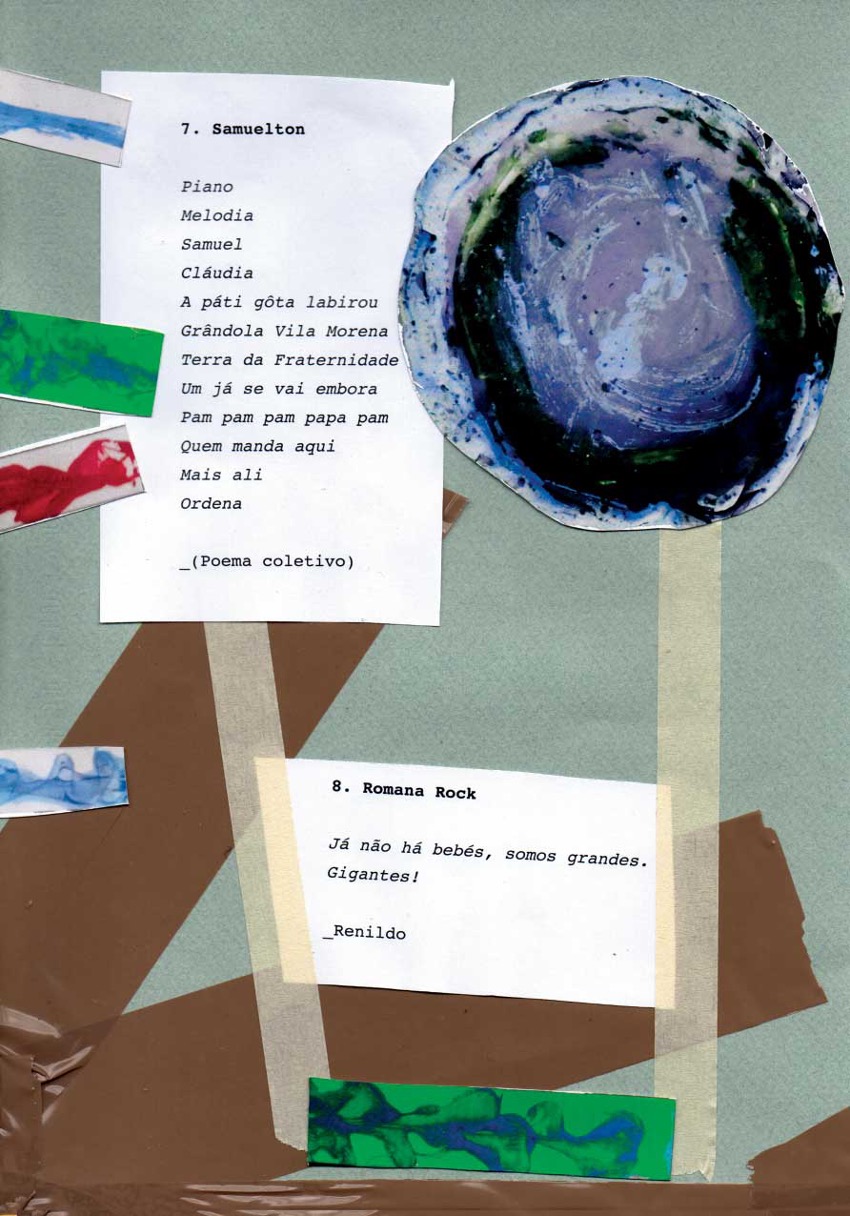 7. Samuelton
Piano
Melodia
Samuel
Cláudia
A páti gôta labirou
Grândola Vila Morena
Terra da Fraternidade
Um já se vai embora
Pam pam pam papa pam
Quem manda aqui
Mais ali
Ordena
_(Poema coletivo)
8. Romana Rock
Já não há bebés, somos grandes.
Gigantes!
_Renildo